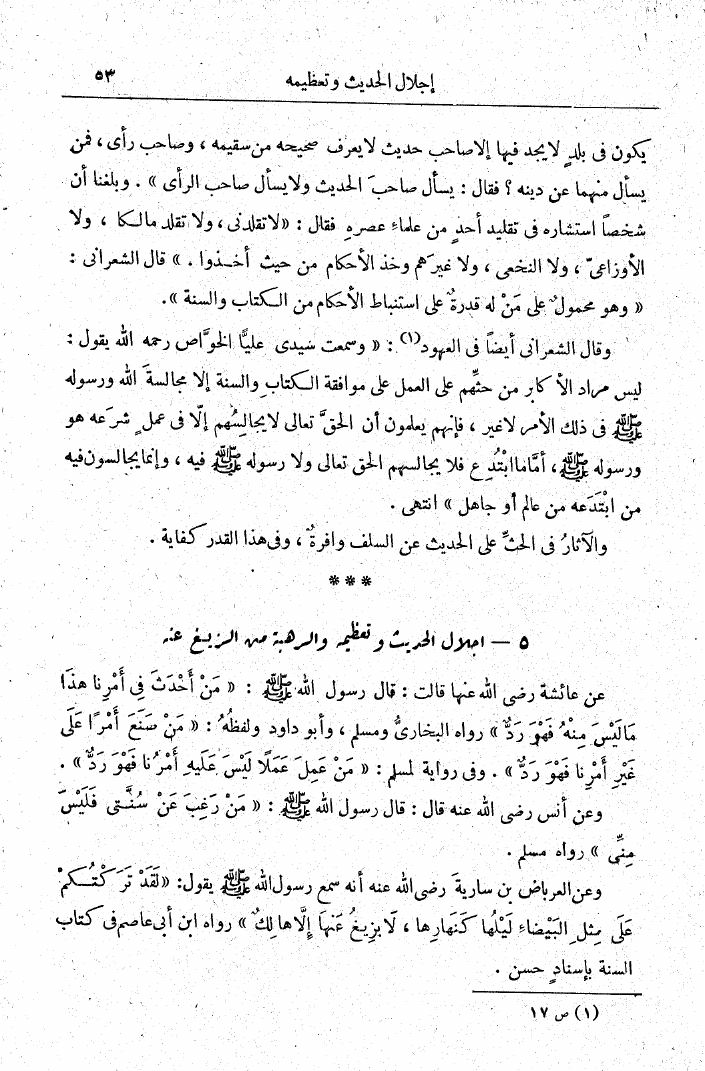 إجلال الحديث وتعظيمه ٥٣
يكون فى بلدٍ لا يجد فيها إلا صاحب حديث لا يعرف صحيحه من سقيمه ، وصاحب رأى ، فمن
يسأل منهما عن دينه ؟ فقال : يسأل صاحبَ الحديث ولا يسأل صاحب الرأى » . وبلغنا أن
شخصاً استشاره فى تقليد أحدٍ من علماءِ عصرهِ فقال : «لا تقلدنى ، ولا تقلد مالكا ، ولا
الأوزاعىّ ، ولا النخعى ، ولا غيرَهم وخذ الأحكام من حيث أخذوا . » قال الشعرانى :
« وهو محمولٌ على مَنْ له قدرةٌ على استنباط الأحكام من الكتاب والسنة » .
وقال الشعرانى أيضاً فى العهود(١) : « وسمعت سَيدى عليًّا الخوَّاص رحمه الله يقول :
ليس مراد الأكابر من حثِّهم على العمل على موافقة الكتابِ والسنة إلا مجالسةَ الله ورسوله
ﷺ فى ذلك الأمر لا غير ، فإنهم يعلمون أن الحقَّ تعالى لا يجالِسُهم إلّا فى عملٍ شرَعه هو
ورسوله ﷺ ، أمَّا ما ابْتُدِع فلا يجالسهم الحق تعالى ولا رسوله ﷺ فيه ، وإنما يجالسون فيه
من ابْتَدَعه من عالم أو جاهل » انتهى .
والآثارُ فى الحثِّ على الحديث عن السلف وافرةٌ ، وفى هذا القدر كفاية .
***
٥ — اجلال الحديث وتعظيمه والرهبة من الزيغ عنه
عن عائشة رضى الله عنها قالت : قال رسول الله ﷺ : « مَنْ أَحْدَثَ فِى أَمْرِنا هذَا
مَا لَيْسَ مِنْهُ فَهْوَ رَدٌّ » رواه البخارىُّ ومسلم ، وأبو داود ولفظُهُ : « مَنْ صَنَعَ أَمْرًا عَلَى
غَيْرِ أَمْرِنا فَهْوَ رَدٌّ » . وفى رواية لمسلم : « مَنْ عَمِلَ عَمَلًا لَيْسَ عَلَيهِ أَمْرُنا فَهْوَ رَدٌّ » .
وعن أنس رضى الله عنه قال : قال رسول الله ﷺ : « مَنْ رَغِبَ عَنْ سُنَّتى فَلَيْسَ
مِنِّى » رواه مسلم .
وعن العرباض بن ساريةَ رضى الله عنه أنه سمع رسول الله ﷺ يقول : «لَقَدْ تَرَكْتُكمْ
عَلَى مِثْلِ البَيْضَاءِ لَيْلُها كَنَهَارِها ، لَا يَزِيغُ عَنْهَا إِلَّا هالِكٌ » رواه ابن أبى عاصم فى كتاب
السنة بإسنادٍ حسن .
(١) ص ١٧